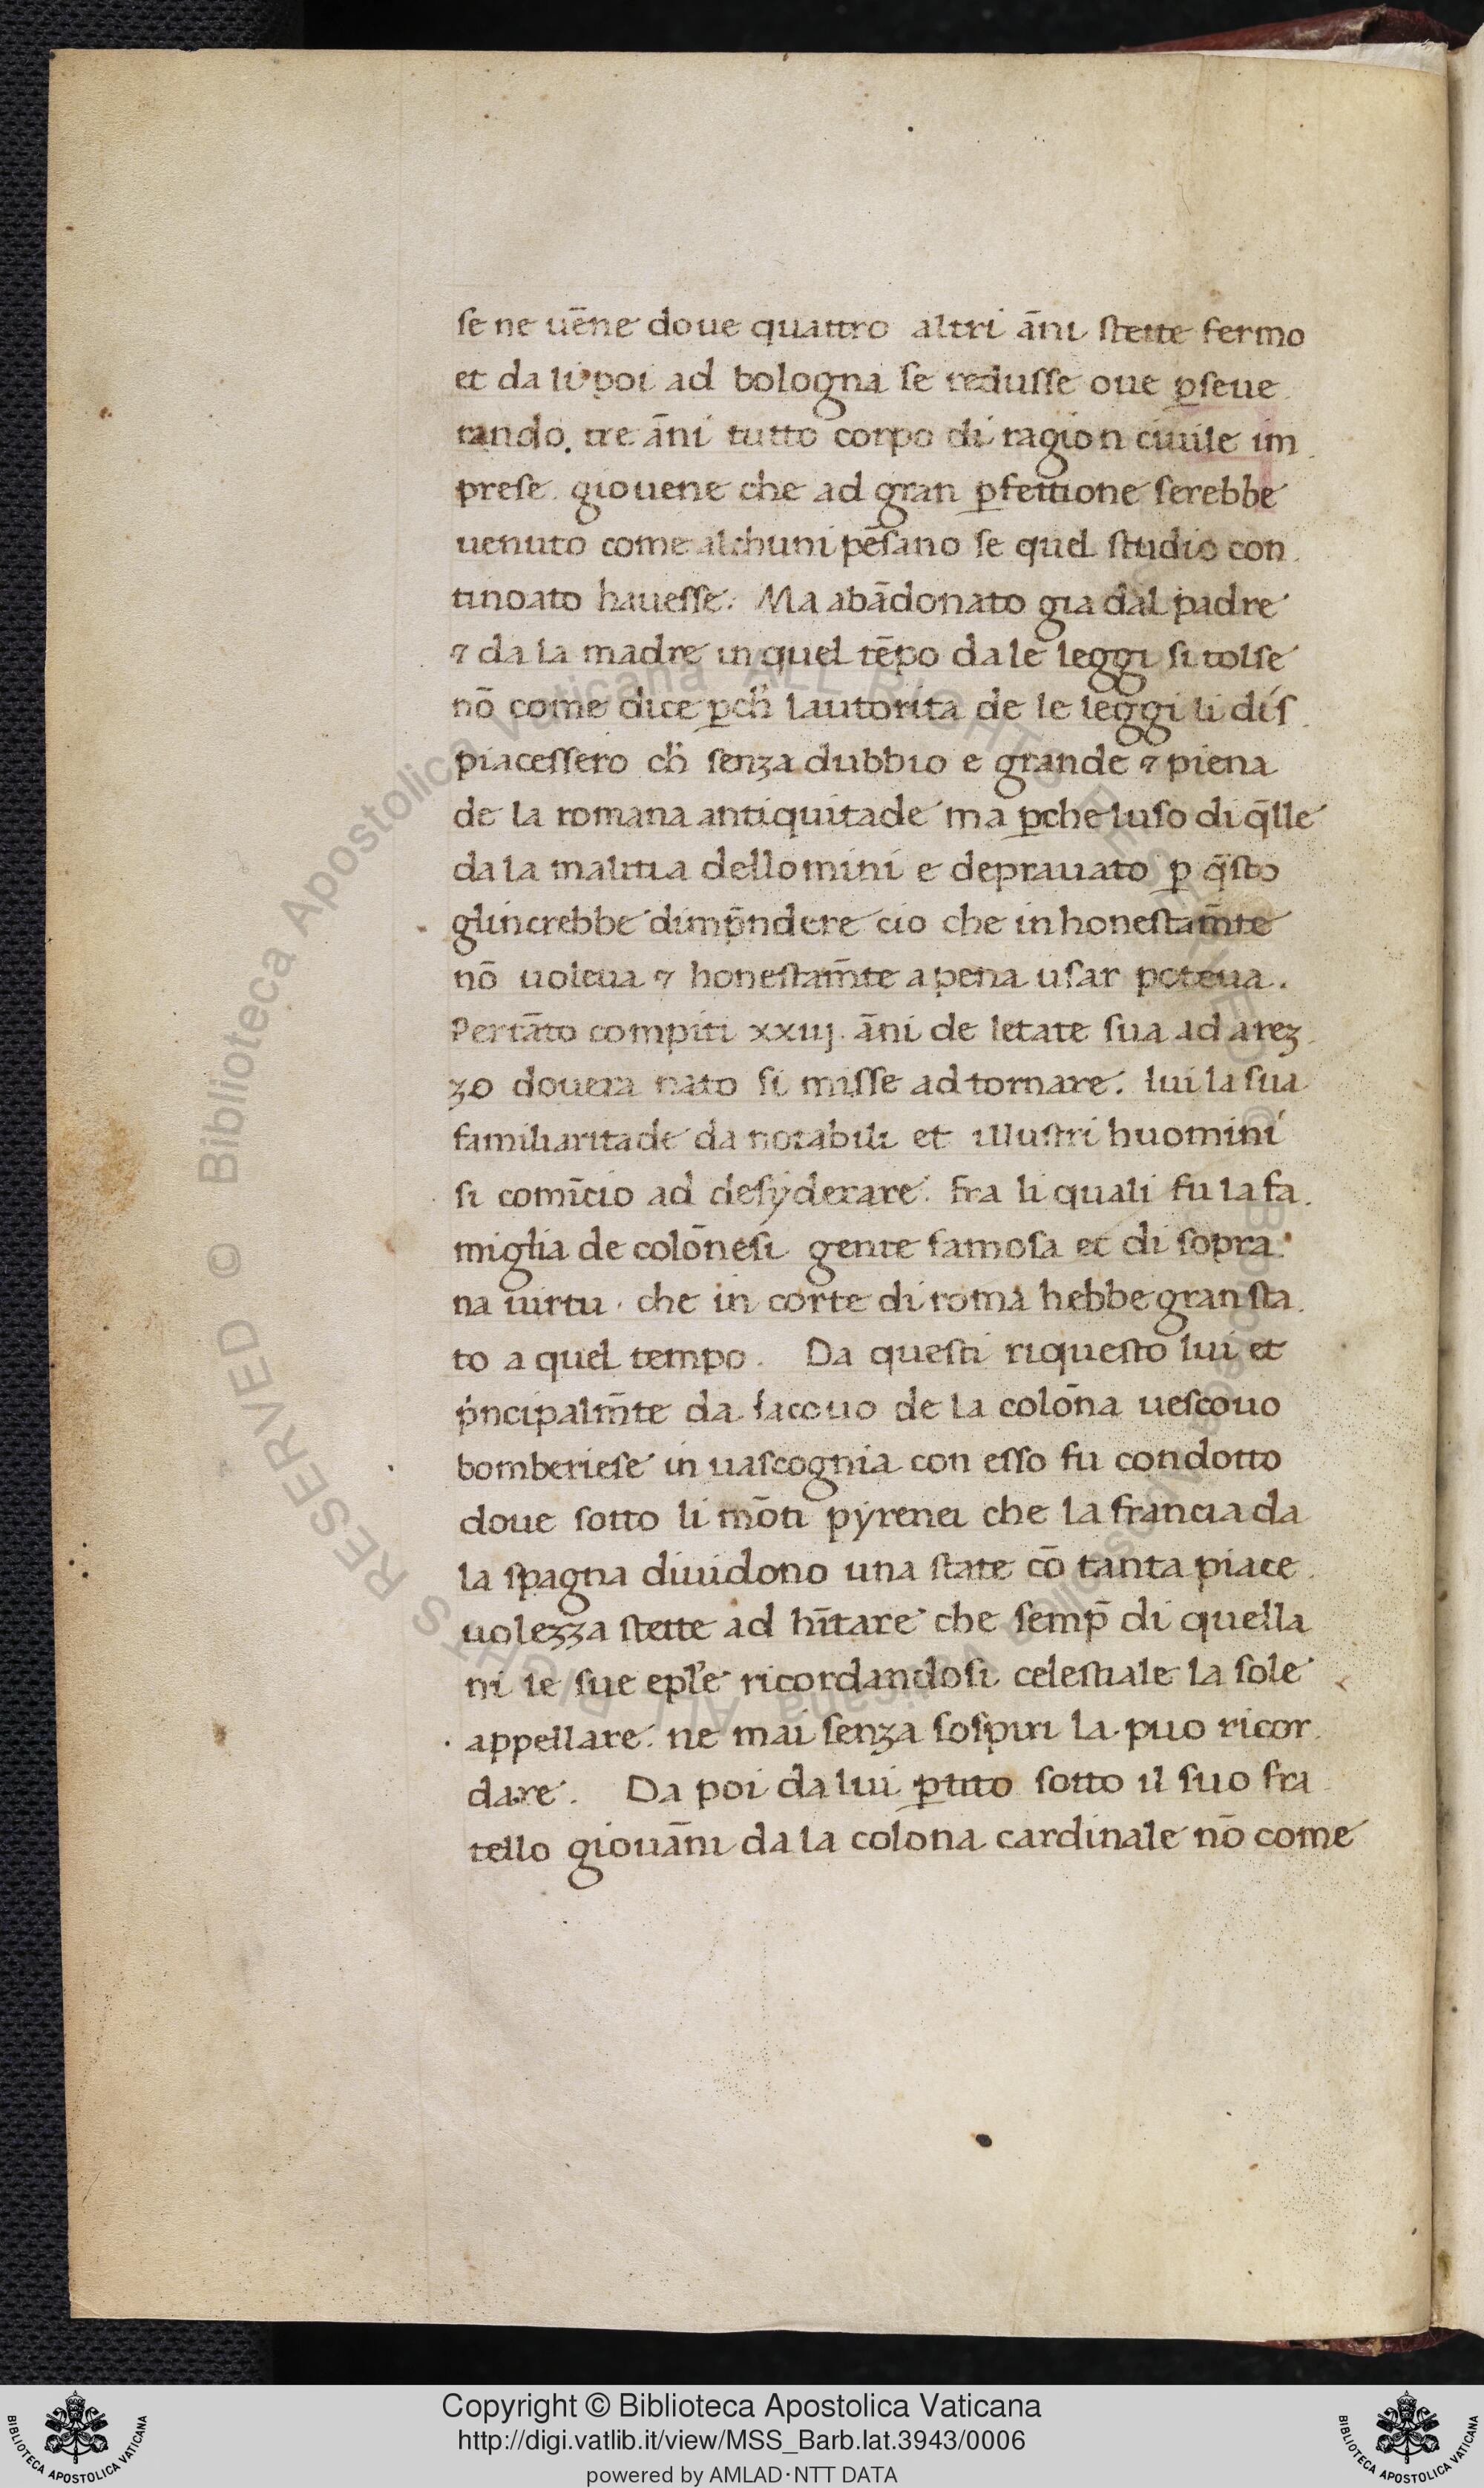 se ne uēne doue quattro altri āni stette fermo
et da li poi ad bologna se redusse oue ꝑseue
rando. tre āni tutto corpo di ragion ciuile im
prese. giouene che ad gran ꝑfettione serebbe
uenuto come alchuni pēsano se quel studio con
tinoato hauesse. Ma abādonato gia dal padre
⁊ da la madre in quel tēpo da le leggi si tolse
nō come dice ꝑch̄ lautorita de le leggi li dis
piacessero ch̄ senza dubbio e grande ⁊ piena
de la romana antiquitade ma ꝑche luso di q̄lle
da la malitia dellomini e deprauato ꝑ q̄sto
glincrebbe dimp̄ndere cio che inhonestam̄te
nō uoleua ⁊ honestam̄te apena usar poteua.
Pertāto compiti xxiij. āni de letate sua ad arez
zo douera nato si misse ad tornare. lui la sua
familiaritade da notabili et illustri huomini
si comīcio ad desyderare. fra li quali fu la fa
miglia de colōnesi gente famosa et di sopra
na uirtu. che in corte di roma hebbe gran sta
to a quel tempo. Da questi riquesto lui et
p̍ncipalm̄te da Iacouo de la colōna uescouo
bomberiese in uascognia con esso fu condotto
doue sotto li mōti pyrenei che la francia da
la spagna diuidono una state cō tanta piace
uolezza stette ad hītare che semp̄ di quella
ni le sue epl̄e ricordandosi celestiale la sole
appellare. ne mai senza sospiri la puo ricor
dare. Da poi da lui ꝑtito sotto il suo fra
tello giouāni da la colona cardinale nō come
© Biblioteca Apostolica Vaticana ALL RIGHTS RESERVED
© Biblioteca Apostolica Vaticana ALL RIGHTS RESERVED
Copyright © Biblioteca Apostolica Vaticana
http://digi.vatlib.it/view/MSS_Barb.lat.3943/0006
powered by AMLAD·NTT DATA
BIBLIOTECA APOSTOLICA VATICANA
BIBLIOTECA APOSTOLICA VATICANA